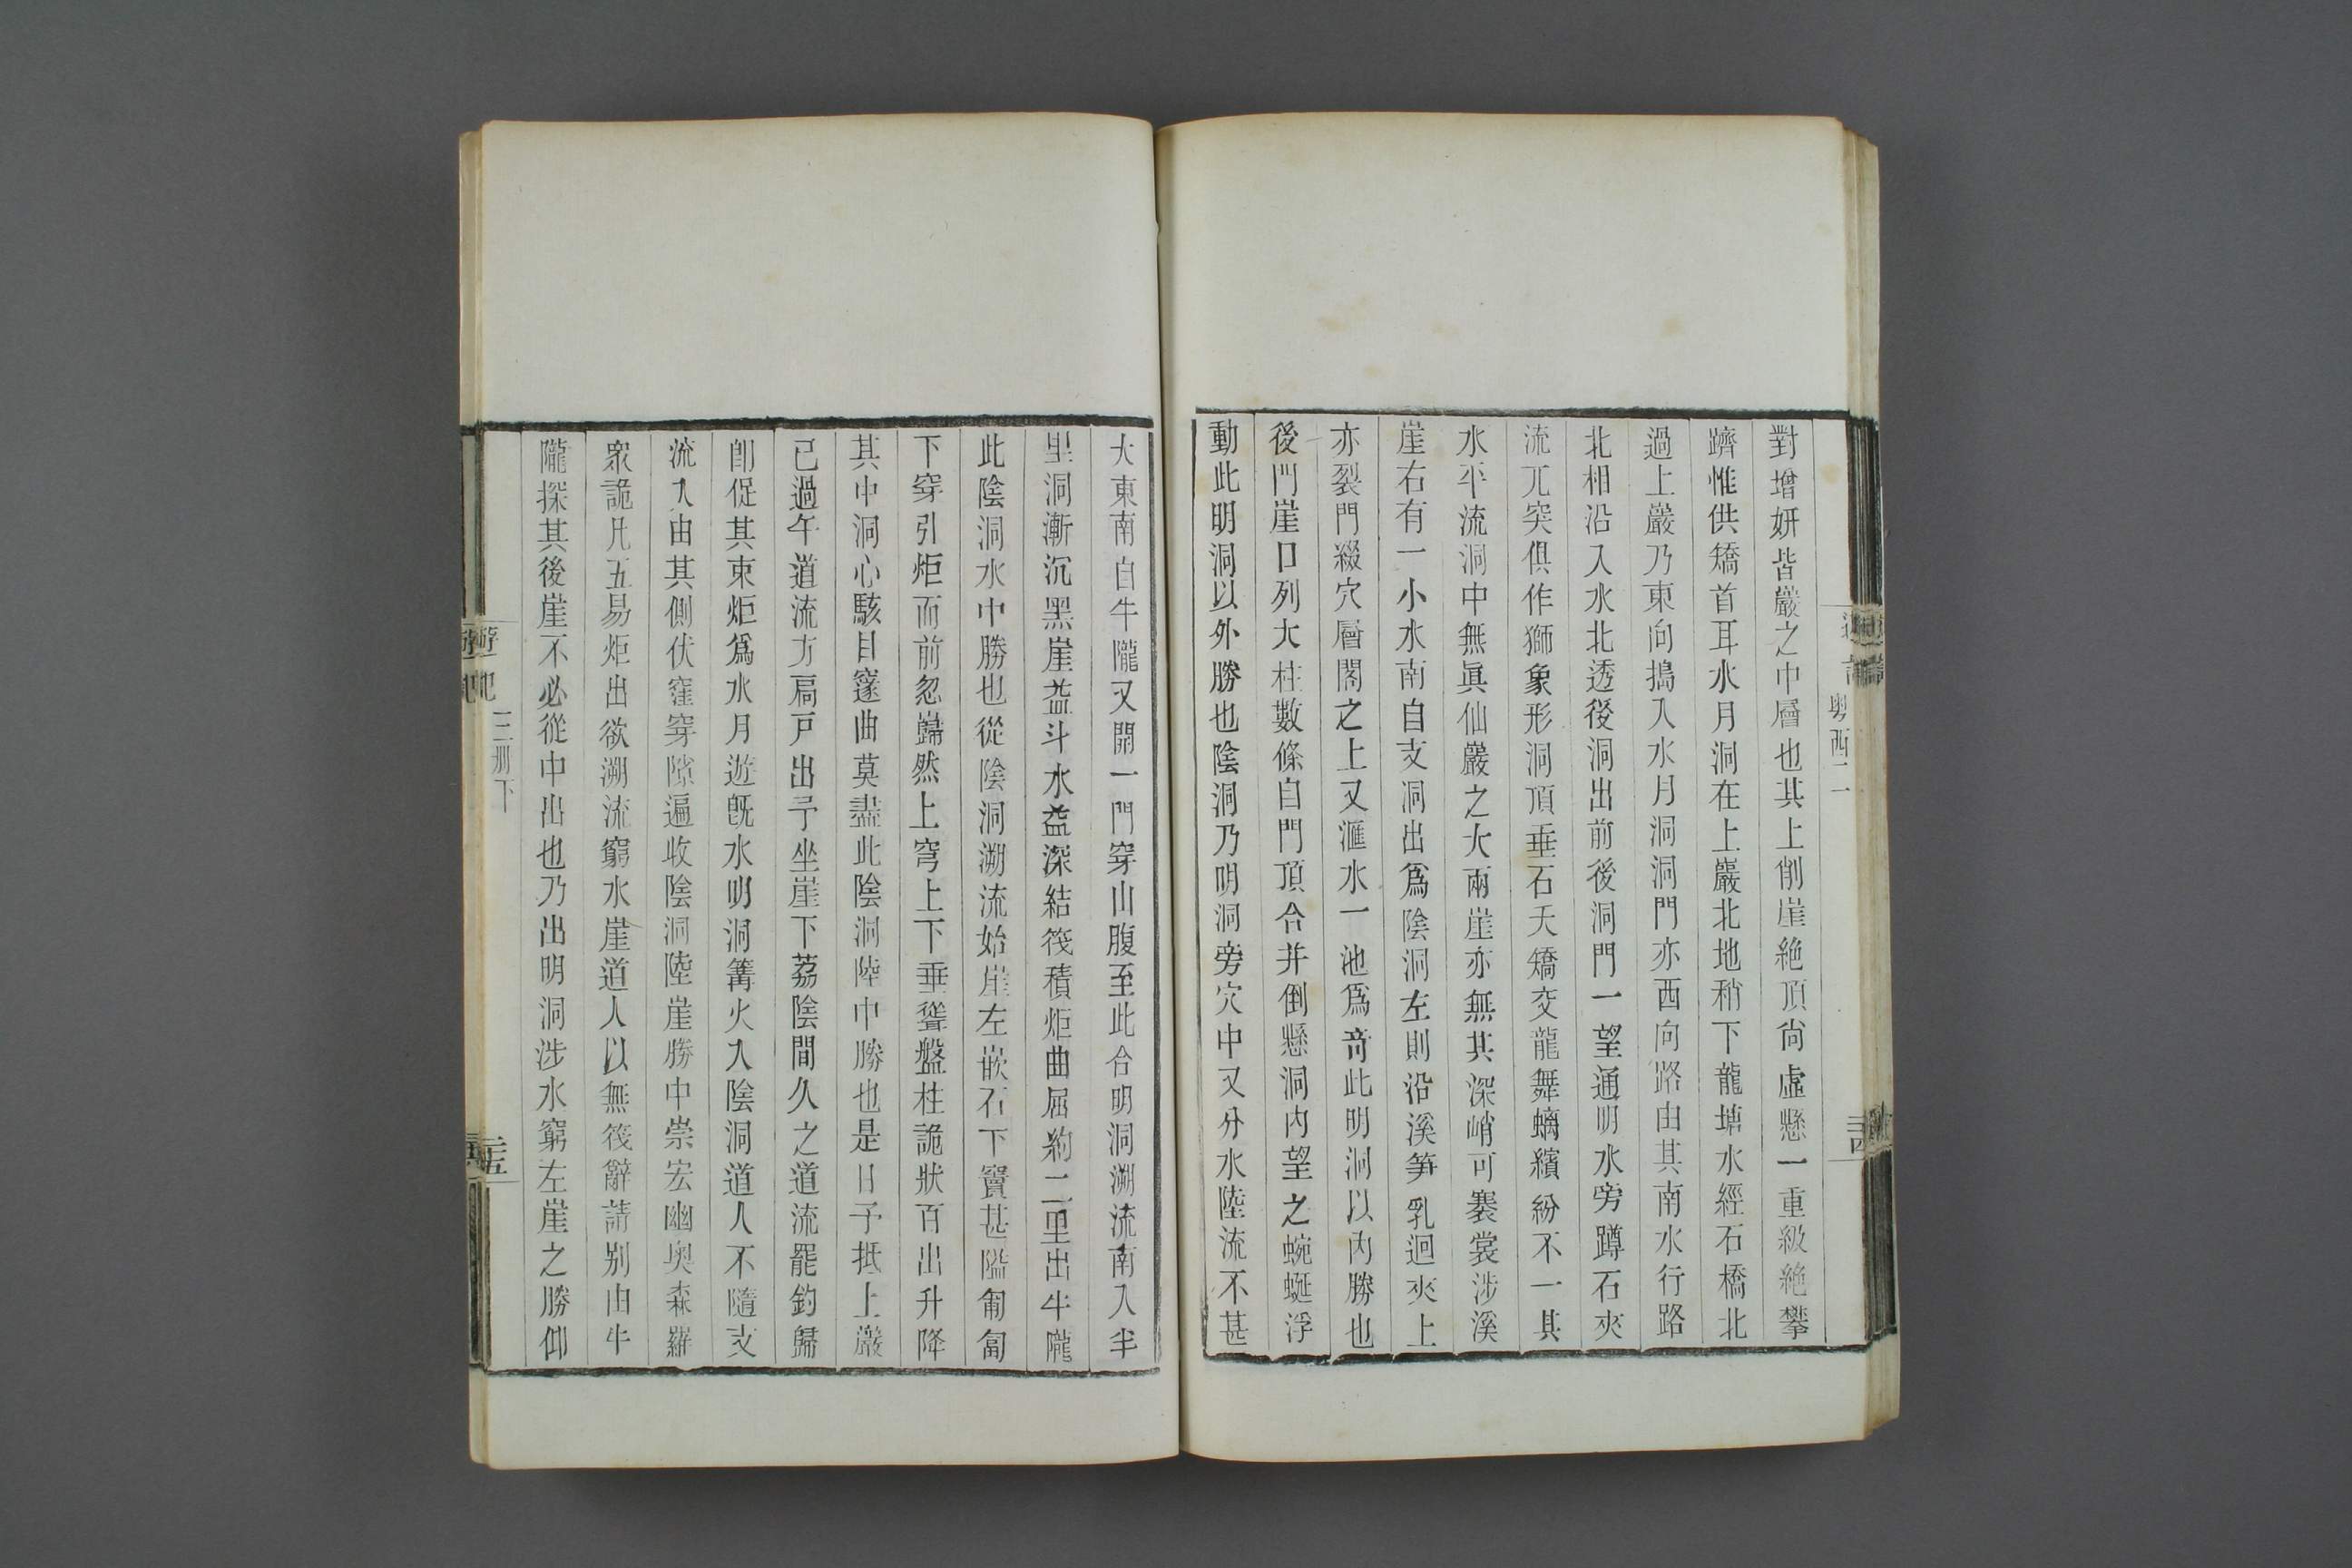 對增妍皆巖之中層也其上削崖絶頂尙虛懸一重級絶攀
躋惟供矯首耳水月洞在上巖北地稍下龍塘水經石橋北
過上巖乃東向搗入水月洞洞門亦西向路由其南水行路
北相沿入水北透後洞出前後洞門一望通明水旁蹲石夾
流兀突俱作獅象形洞頂垂石夭矯交龍舞螭繽紛不一其
水平流洞中無眞仙巖之大兩崖亦無其深峭可褰裳涉溪
崖右有一小水南自支洞出爲陰洞左則沿溪笋乳迴夾上
亦裂門綴穴層閣之上又滙水一池爲奇此明洞以內勝也
後門崖口列大柱數條自門頂合并倒懸洞內望之蜿蜒浮
動此明洞以外勝也陰洞乃明洞旁穴中又分水陸流不甚
大東南自牛隴又開一門穿山腹至此合明洞溯流南入半
里洞漸沉黑崖益斗水益深結筏積炬曲屈約二里出牛隴
此陰洞水中勝也從陰洞溯流始崖左嵌石下竇甚隘匍匐
下穿引炬而前忽巋然上穹上下垂聳盤柱詭狀百出升降
其中洞心駭目邃曲莫盡此陰洞陸中勝也是日予抵上巖
已過午道流方扃戸出予坐崖下荔陰間久之道流罷釣歸
卽促其束炬爲水月遊旣水明洞篝火入陰洞道人不隨支
流入由其側伏窪穿隙遍收陰洞陸崖勝中崇宏幽奥森羅
衆詭凡五易炬出欲溯流窮水崖道人以無筏辭請别由牛
隴探其後崖不必從中出也乃出明洞涉水窮左崖之勝仰
遊記
三册下
二十五
粤西二